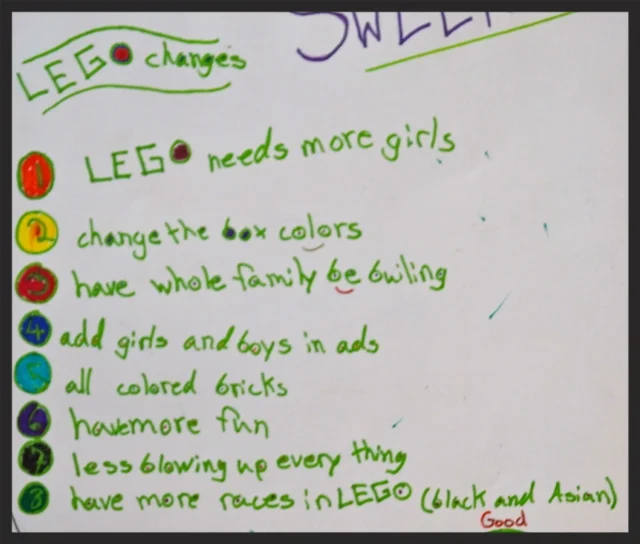 SWEE
LEGO changes
1 LEGO needs more girls
2 change the box colors
3 have whole family be bwiling
4 add girls and boys in ads
5 all colored bricks
6 have more fun
7 less blowing up every thing
8 have more races in LEGO (black and Asian)
Good